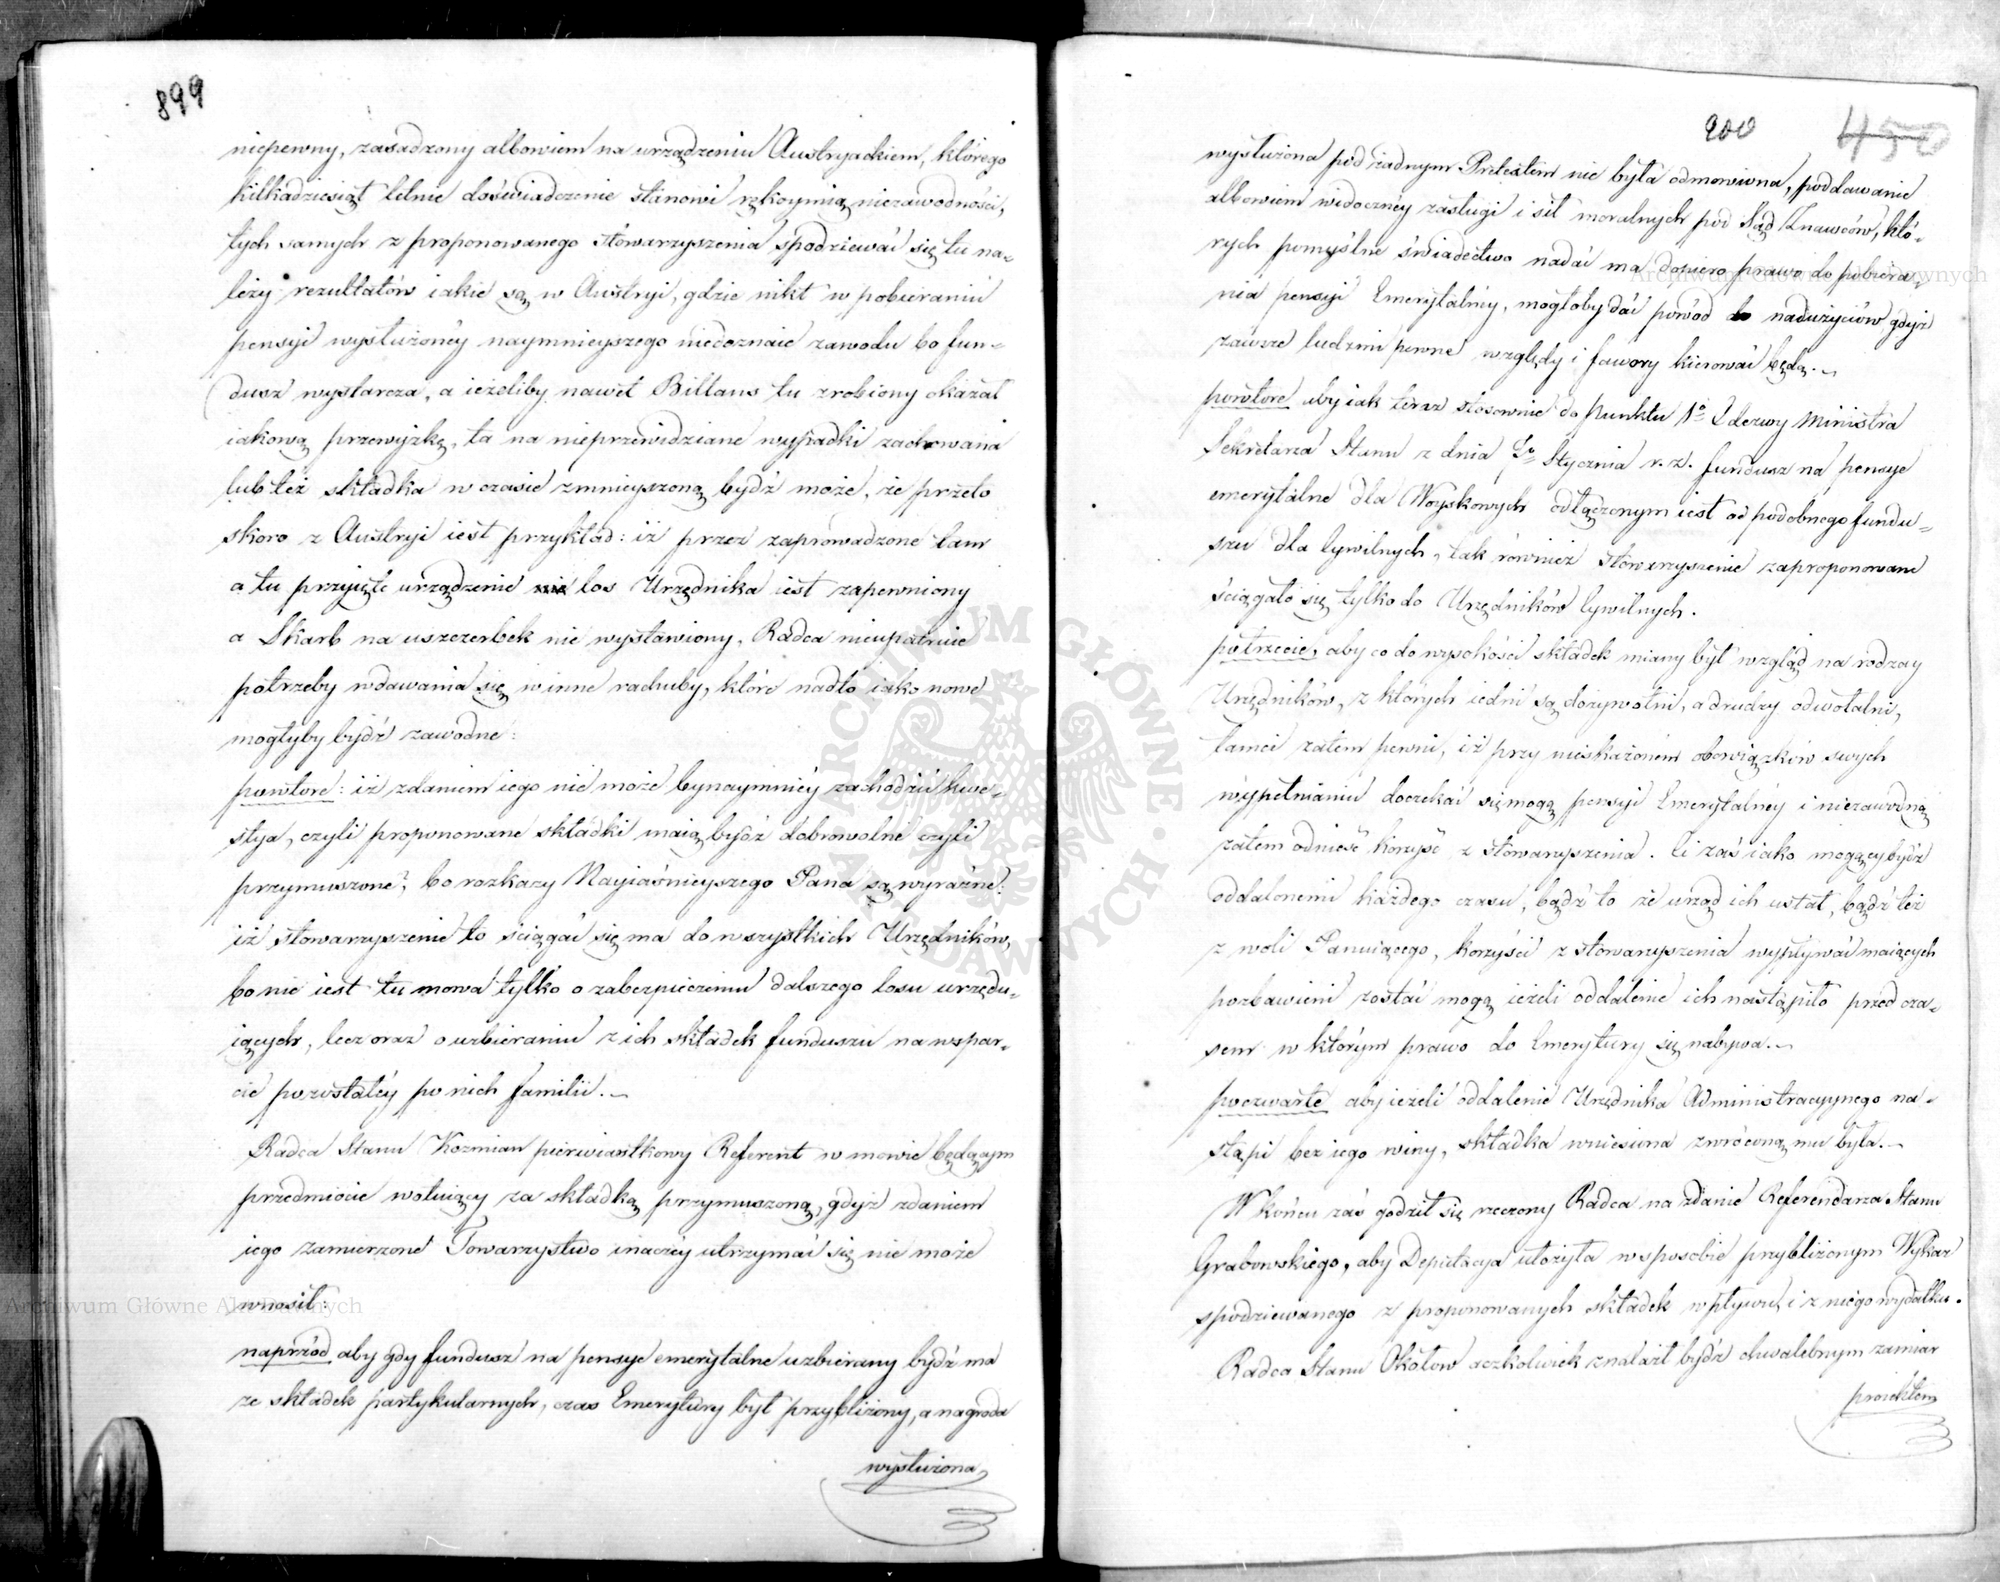 899
niepewny, zasadzony albowiem na urządzeniu Austryackiem, którego
kilkadziesiąt letnie doświadczenie stanowi rękoymią niezawodności,
tych samych z proponowanego stowarzyszenia spodziewać się tu na-
leży rezultatów iakie są w Austryi, gdzie nikt w pobieraniu
pensyi wysłużoney naymnieyszego niedoznaie zawodu bo fun-
dusz wystarcza, a ieżeliby nawet Billans tu zrobiony okazał
iakową przewyżkę, ta na nieprzewidziane wypadki zachowana
lub też składka w czasie zmnieyszoną bydź może, że przeto
skoro z Austryi iest przykład: iż przez zaprowadzone tam
a tu przyięte urządzenie los Urzędnika iest zapewniony
a Skarb na uszczerbek nie wystawiony, Radca nieupatruie
potrzeby wdawania się w inne rachuby, które nadto iako nowe
mogłyby bydź zawodne:
powtóre: iż zdaniem iego nie może bynaymniéy zachodzić kwe-
stya, czyli proponowane składki maią bydź dobrowolne czyli
przymuszone, bo rozkazy Nayiaśnieyszego Pana są wyraźne:
iż stowarzyszenie to ściągać się ma do wszystkich Urzędników,
bo nie iest tu mowa tylko o zabezpieczeniu dalszego losu urzędu-
iących, lecz oraz o uzbieraniu z ich składek funduszu na wspar-
cie pozostałéy po nich familii.–
Radca Stanu Kozmian pierwiastkowy Referent w mowie będącym
przedmiocie wotuiący za składką przymuszoną, gdyż zdaniem
iego zamierzone Towarzystwo inaczéy utrzymać się nie może
wnosił:
naprzód aby gdy fundusz na pensye emerytalne uzbierany bydź ma
ze składek partykularnych, czas Emerytury był przybliżony, a nagroda
wysłużona
900
450
wysłużona pod żadnym Pretextem nie była odmowiona, poddawanie
albowiem widoczney zasługi i sił moralnych pod Sąd Znawców, któ-
rych pomyślne świadectwo nadać ma dopiero prawo do pobiera-
nia pensyi Emerytalnéy, mogłoby dać powód do nadużyciów gdyż
zawsze ludzmi pewne względy i fawory kierować będą.–
powtóre aby iak teraz stosownie do punktu 1º Odezwy Ministra
Sekretarza Stanu z dnia Stycznia r.z. fundusz na pensye
emerytalne dla Woyskowych odłączonym iest od podobnego fundu-
szu dla Cywilnych, tak również stowarzyszenie zaproponowane
ściągało się tylko do Urzędników Cywilnych.
potrzecie, aby co do wysokości składek miany był wzgląd na rodzay
Urzędników, z których iedni są dożywotni, a drudzy odwołalni,
tamci zatem pewni, iż przy nieskażoném obowiązków swych
wypełnianiu doczekać się mogą pensyi Emerytalnéy i niezawodną
zatem odnieść korzyść z stowarzyszenia. Ci zaś iako mogący bydź
oddalonemi każdego czasu, bądź to że urząd ich ustał, bądź też
z woli Panuiącego, korzyści z stowarzyszenia wypływać maiących
pozbawieni zostać mogą ieżeli oddalenie ich nastąpiło przed cza-
sem w którym prawo do Emerytury się nabywa.–
poczwarte aby ieżeli oddalenie Urzędnika Administracyynego na-
stąpi bez iego winy, składka wniesiona zwróconą mu była.–
W końcu zaś godził się rzeczony Radca na zdanie Referendarza Stanu
Grabowskiego, aby Deputacya ułożyła w sposobie przybliżonym Wykaz
spodziewanego z proponowanych składek wpływu, i z niego wydatku.
Radca Stanu Okołow aczkolwiek znalazł bydź chwalebnym zamiar
proiektem
ARCHIWUM GŁÓWNE AKT DAWNYCH
Archiwum Główne Akt Dawnych
Archiwum Główne Akt Dawnych